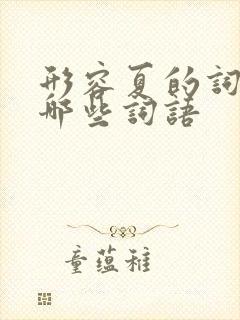 形容夏的詞
哪些詞語
童蕴稚